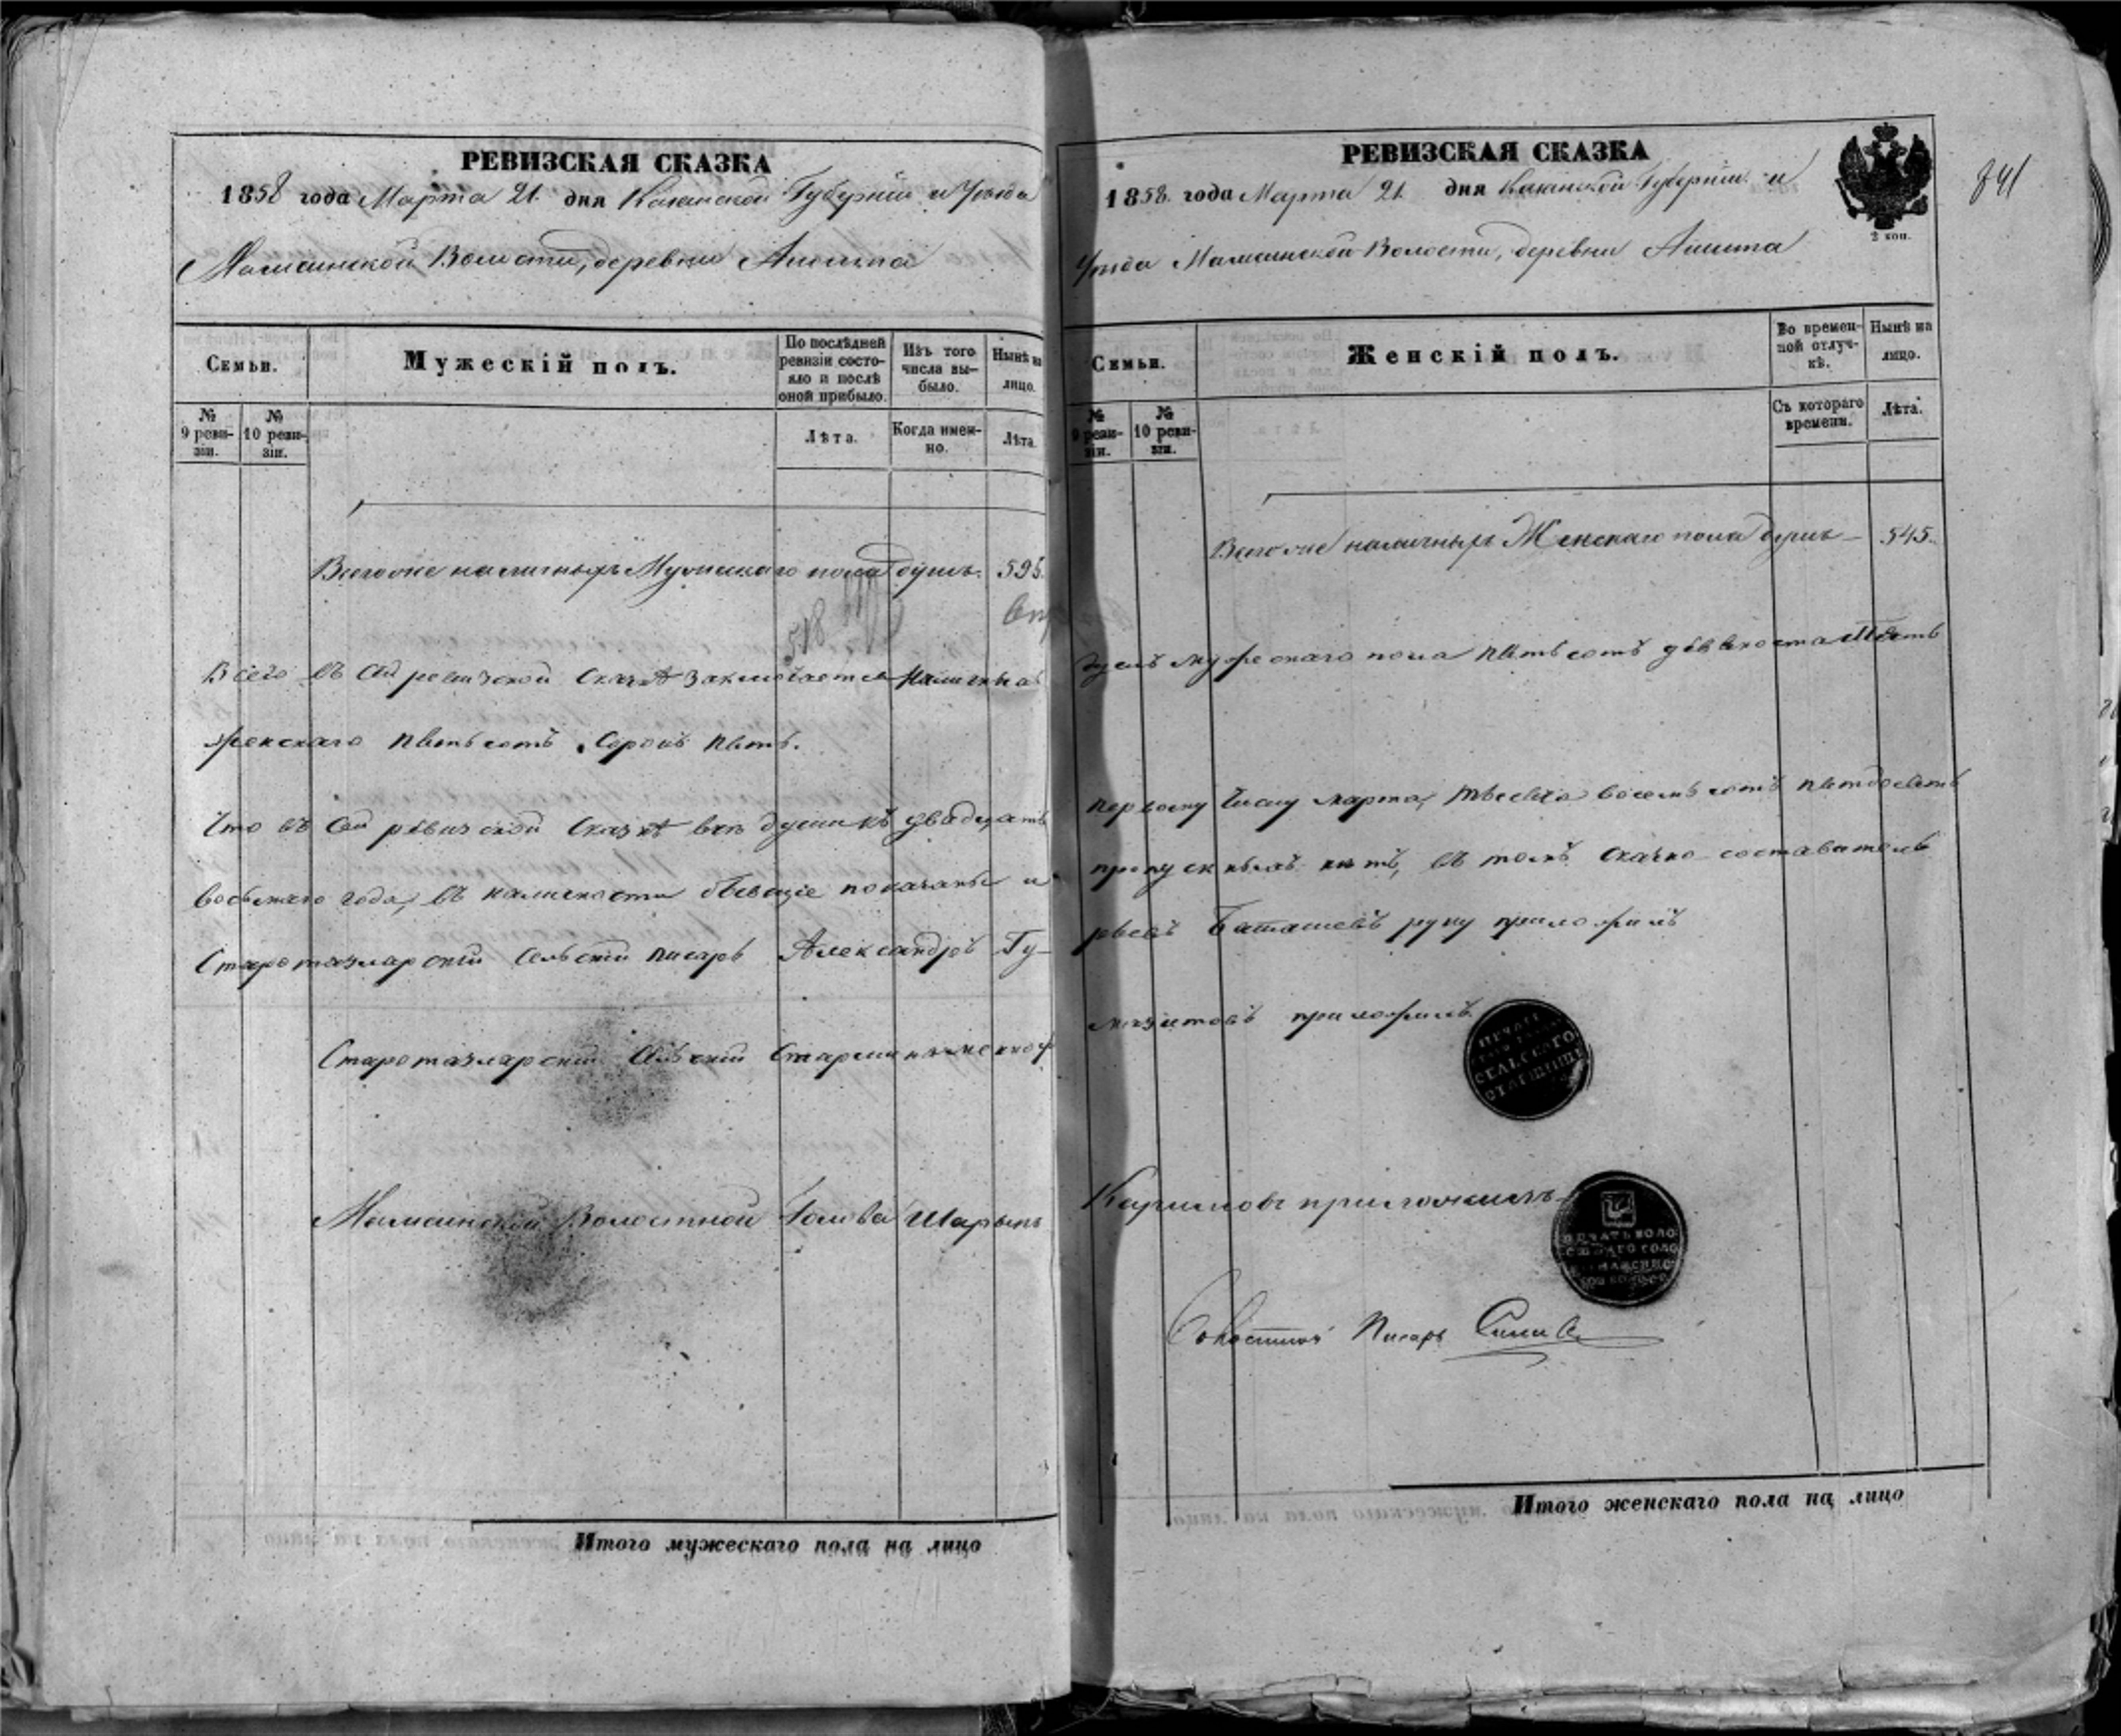 РЕВИЗСКАЯ СКАЗКА
1858 года Марта 21. дня Казанской Губерніи и Уѣзда
Мамсинской Волости, деревни Айшта
Семьи.
Мужескій полъ.
По послѣдней ревизіи состояло и послѣ оной прибыло.
Изъ того числа выбыло.
Нынѣ на лицо.
№ 9 ревизіи.
№ 10 ревизіи.
Лѣта.
Когда именно.
Лѣта.
Всего же наличныхъ Мужескаго пола душъ. 595.
518
Всего въ сей ревизской сказкѣ заключается наличныхъ
женскаго пятьсотъ сорокъ пять.
Что въ сей ревизской сказкѣ всѣ души къ двадцать
восьмаго года, въ наличности бывшіе показаны и
Старотазларскій Сельскій писарь Александръ Гу-
Старотазларскій Сельскій Старшина
Мамсинской Волостной Голова Шарыпъ
Итого мужескаго пола на лицо
РЕВИЗСКАЯ СКАЗКА
1858. года Марта 21. дня Казанской Губерніи и
841
2 коп.
Уѣзда Мамсинской Волости, деревни Айшта
Семьи.
Женскій полъ.
Во временной отлучкѣ.
Нынѣ на лицо.
№ 9 ревизіи.
№ 10 ревизіи.
Съ котораго времени.
Лѣта.
Всего же наличныхъ Женскаго пола душъ 545.
душъ мужескаго пола пятьсотъ девяносто пять
первому числу марта, мѣсяца восемьсотъ пятдесятъ
пропускныхъ нѣтъ, въ томъ сказко-составитель
рьевъ Баташевъ руку приложилъ
приложилъ
ПЕЧАТЬ
СЕЛЬСКАГО
СТАРШИНЫ
Каримовъ приложилъ
ПЕЧАТЬ ВОЛО
СТНАГО ГОЛО
Волостной Писарь
Итого женскаго пола на лицо